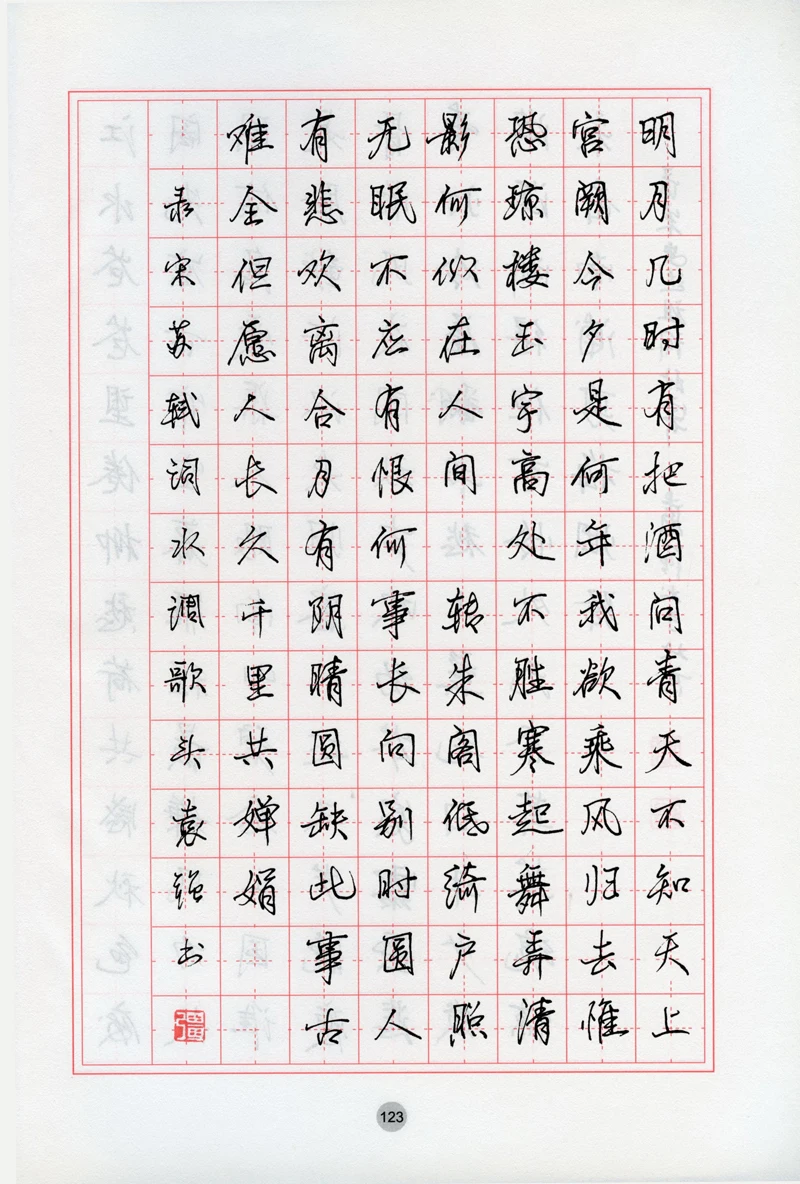 明月几时有把酒问青天不知天上
宫阙今夕是何年我欲乘风归去惟
恐琼楼玉宇高处不胜寒起舞弄清
影何似在人间 转朱阁低绮户照
无眠不应有恨何事长向别时圆人
有悲欢离合月有阴晴圆缺此事古
难全但愿人长久千里共婵娟
录宋苏轼词水调歌头袁强书
彊
123